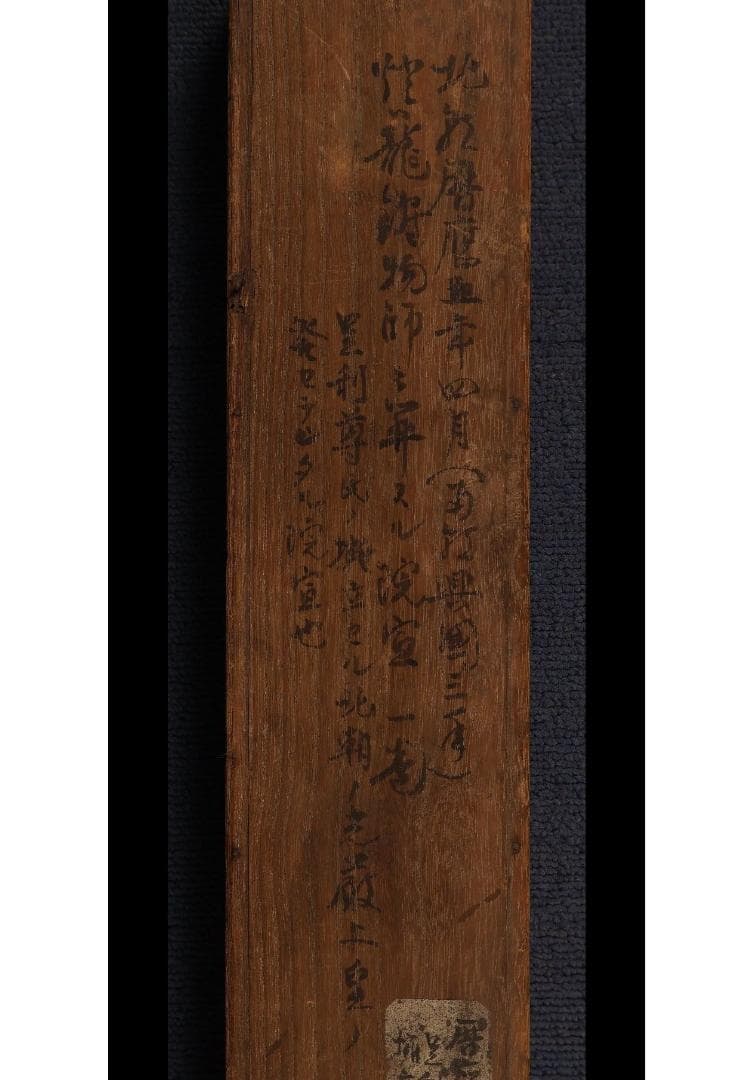 北朝暦應五年四月(南朝興國三年)
燈籠鋳物師ニ算スル院宣一巻
足利尊氏ノ擁立セル北朝ノ光厳上皇ノ
発セラレタル院宣也
暦應